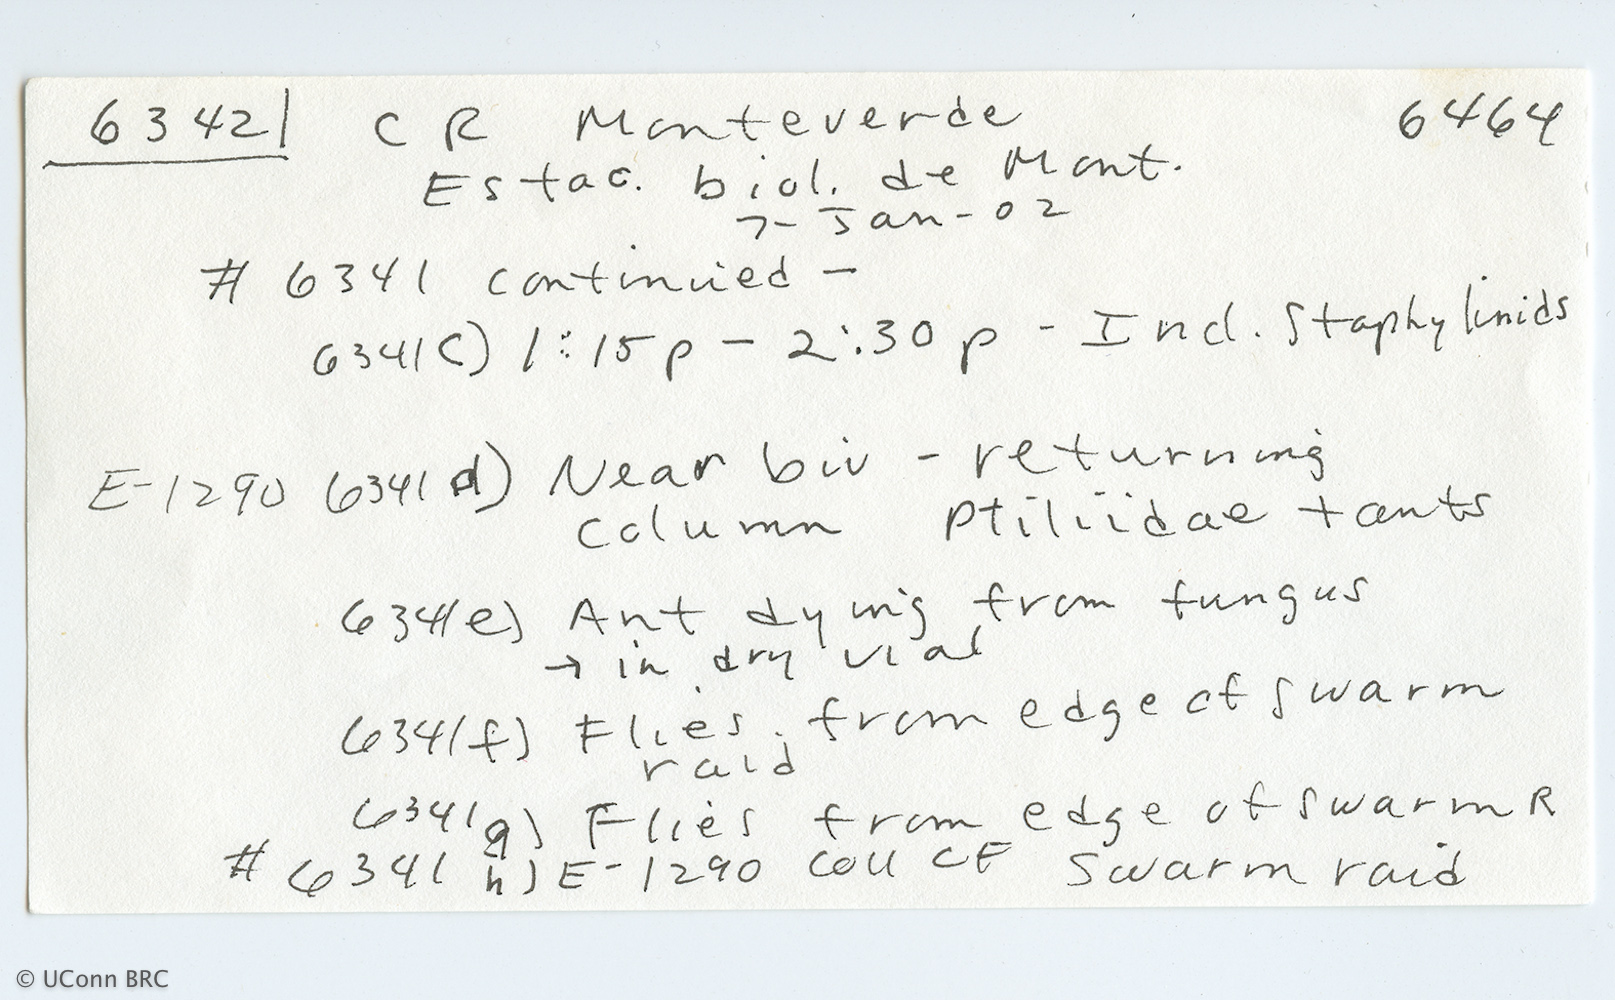 6342 CR Monteverde 6464
Estac. biol. de Mont.
7-Jan-02
# 6341 continued –
6341 c) 1:15p – 2:30p - Incl. Staphylinids
E-1290 6341 d) Near biv - returning
column Ptiliidae + ants
6341 e) Ant dying from fungus
→ in dry vial
6341 f) Flies from edge of swarm
raid
6341 g) Flies from edge of swarm R
# 6341 h) E-1290 coll CF Swarm raid
© UConn BRC